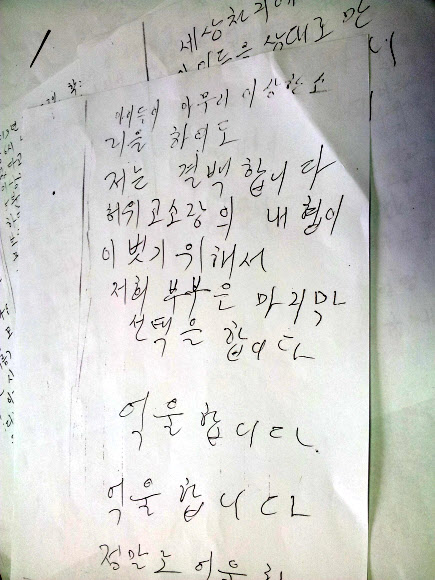 세상천지에
상대로 만
아무리 이상한 소
리을 하여도
저는 결백합니다
허위 고소랑의 내 협이
이 벗기 위해서
저희 부부은 마지막
선택을 합이다
억울합니다.
억울합니다
정말로 억울